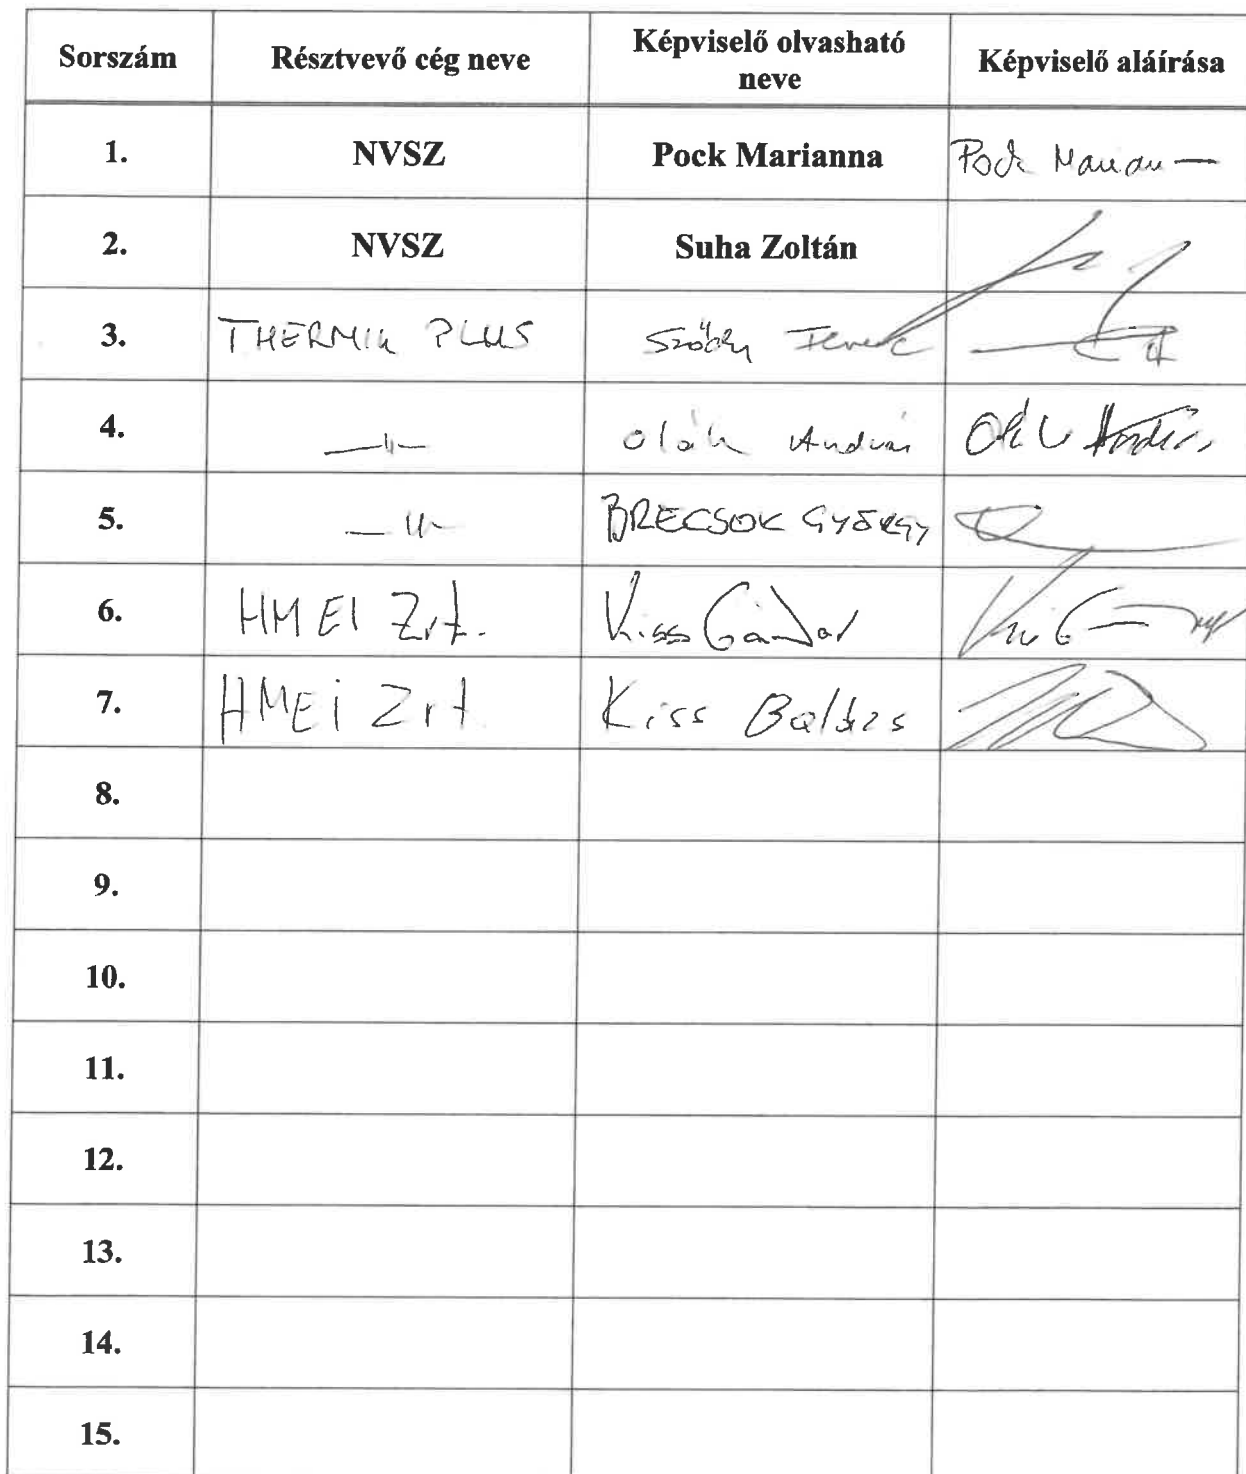 Sorszám Résztvevő cég neve Képviselő olvasható neve Képviselő aláírása
1. NVSZ Pock Marianna Pock Marian
2. NVSZ Suha Zoltán
3. THERMIK PLUS Ferenc
4. —〃— Oláh András
5. —〃— BRECSOK GYÖRGY
6. HM EI Zrt. Kiss Gábor
7. HM Ei Zrt. Kiss Balázs
8.
9.
10.
11.
12.
13.
14.
15.